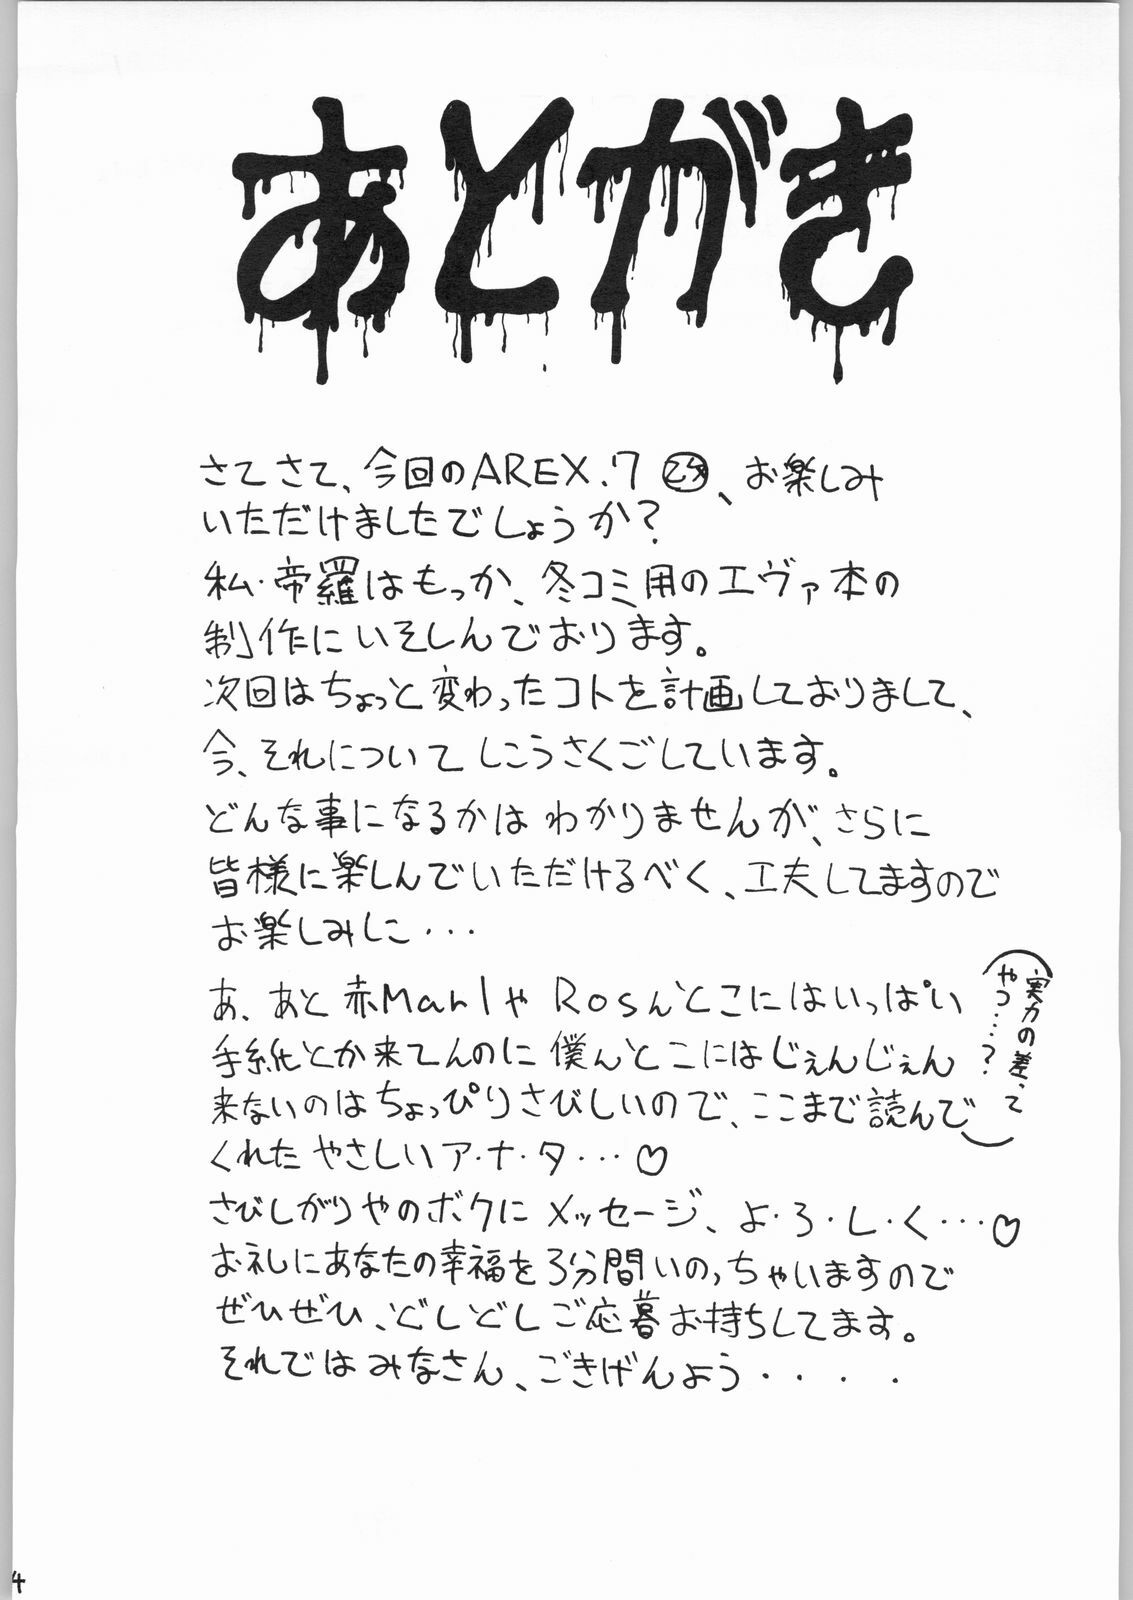 あとがき
さてさて、今回のAREX.7 、お楽しみ
いただけましたでしょうか?
私・帝羅はもっか、冬コミ用のエヴァ本の
制作にいそしんでおります。
次回はちょっと変わったコトを計画しておりまして、
今、それについてしこうさくごしています。
どんな事になるかはわかりませんが、さらに
皆様に楽しんでいただけるべく、工夫してますので
お楽しみしに・・・
あ、あと赤ManlやRosんとこにはいっぱい
手紙とか来てんのに僕んとこにはじぇんじぇん
来ないのはちょっぴりさびしいので、ここまで読んで
くれたやさしいア・ナ・タ・・・♡
(実力の差、って
やつ・・・?)
さびしがりやのボクにメッセージ、よ・ろ・し・く・・・♡
お礼にあなたの幸福を3分間いのっちゃいますので
ぜひぜひ、どしどしご応募お持ちしてます。
それではみなさん、ごきげんよう・・・・
4